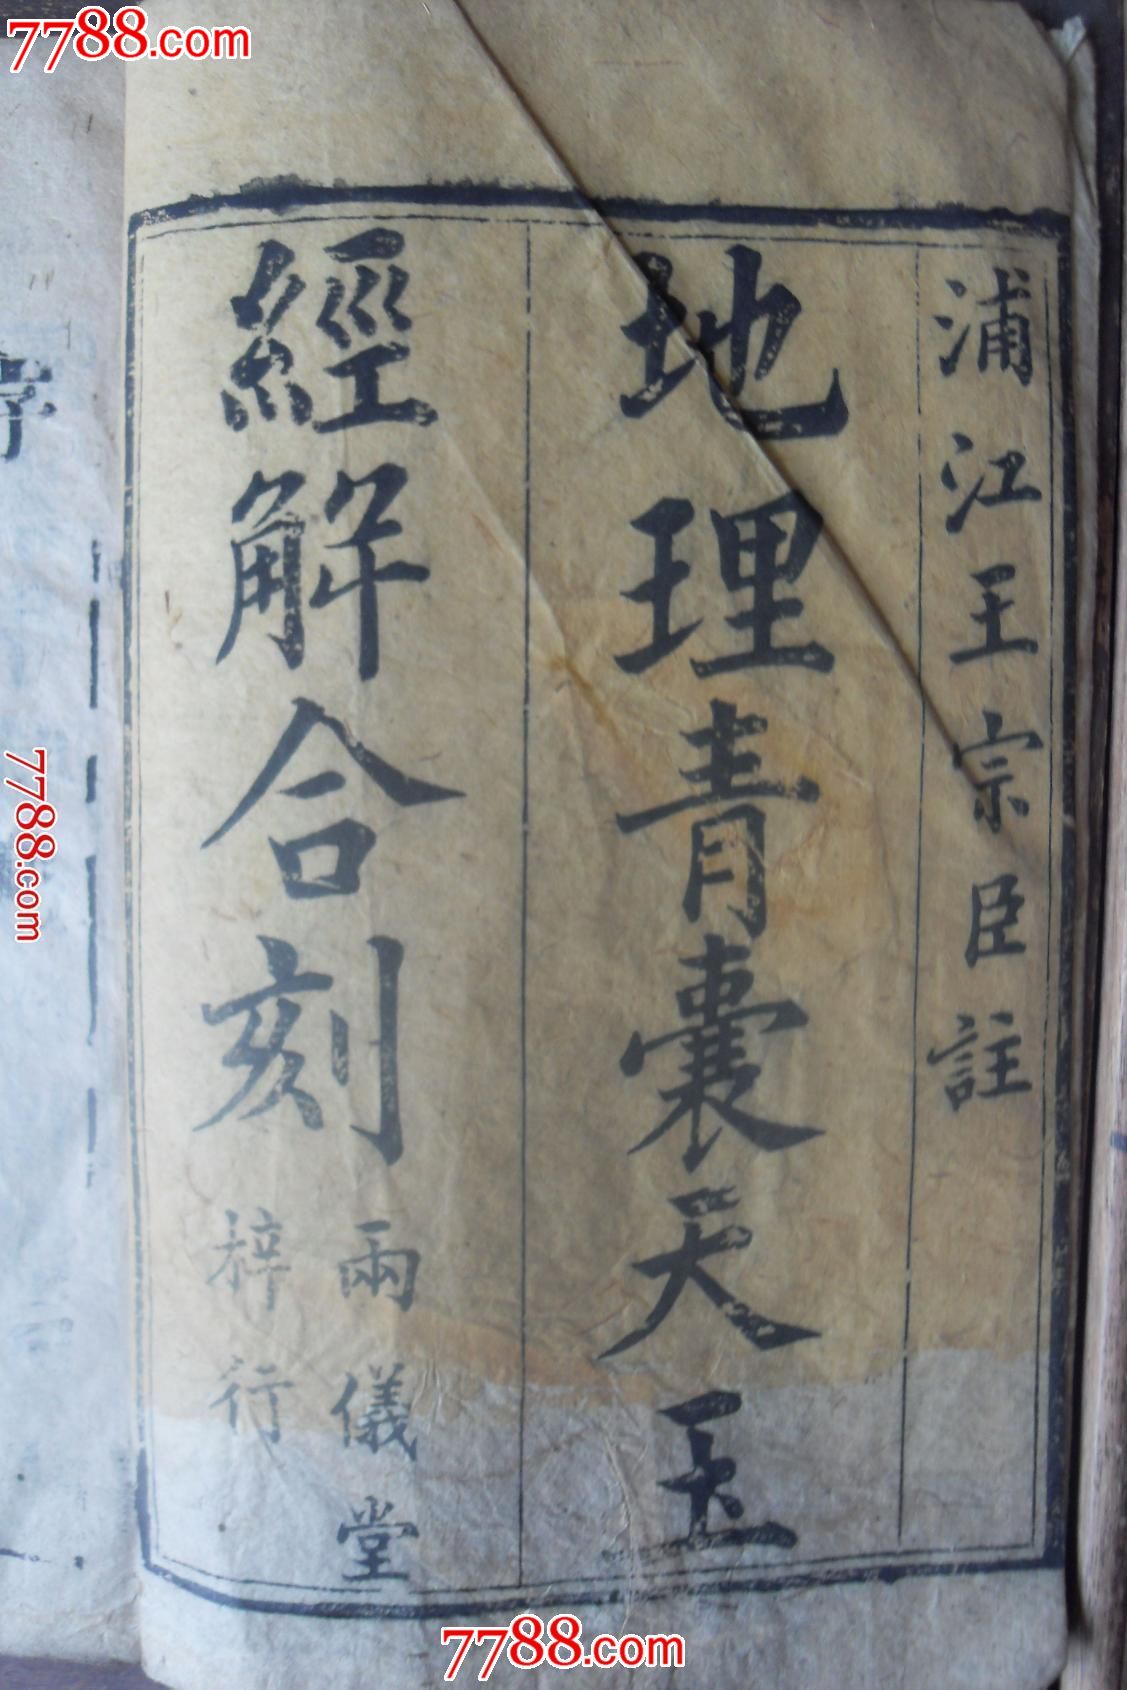 浦江王宗臣註
地理青囊天玉
經解合刻
兩儀堂
梓行
字
7788.com
7788.com
7788.com